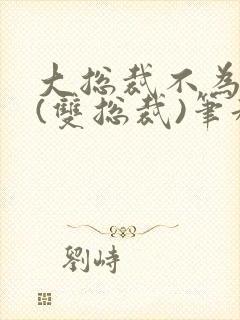 大拁裁不為
(雙拁裁)筆
劉峙